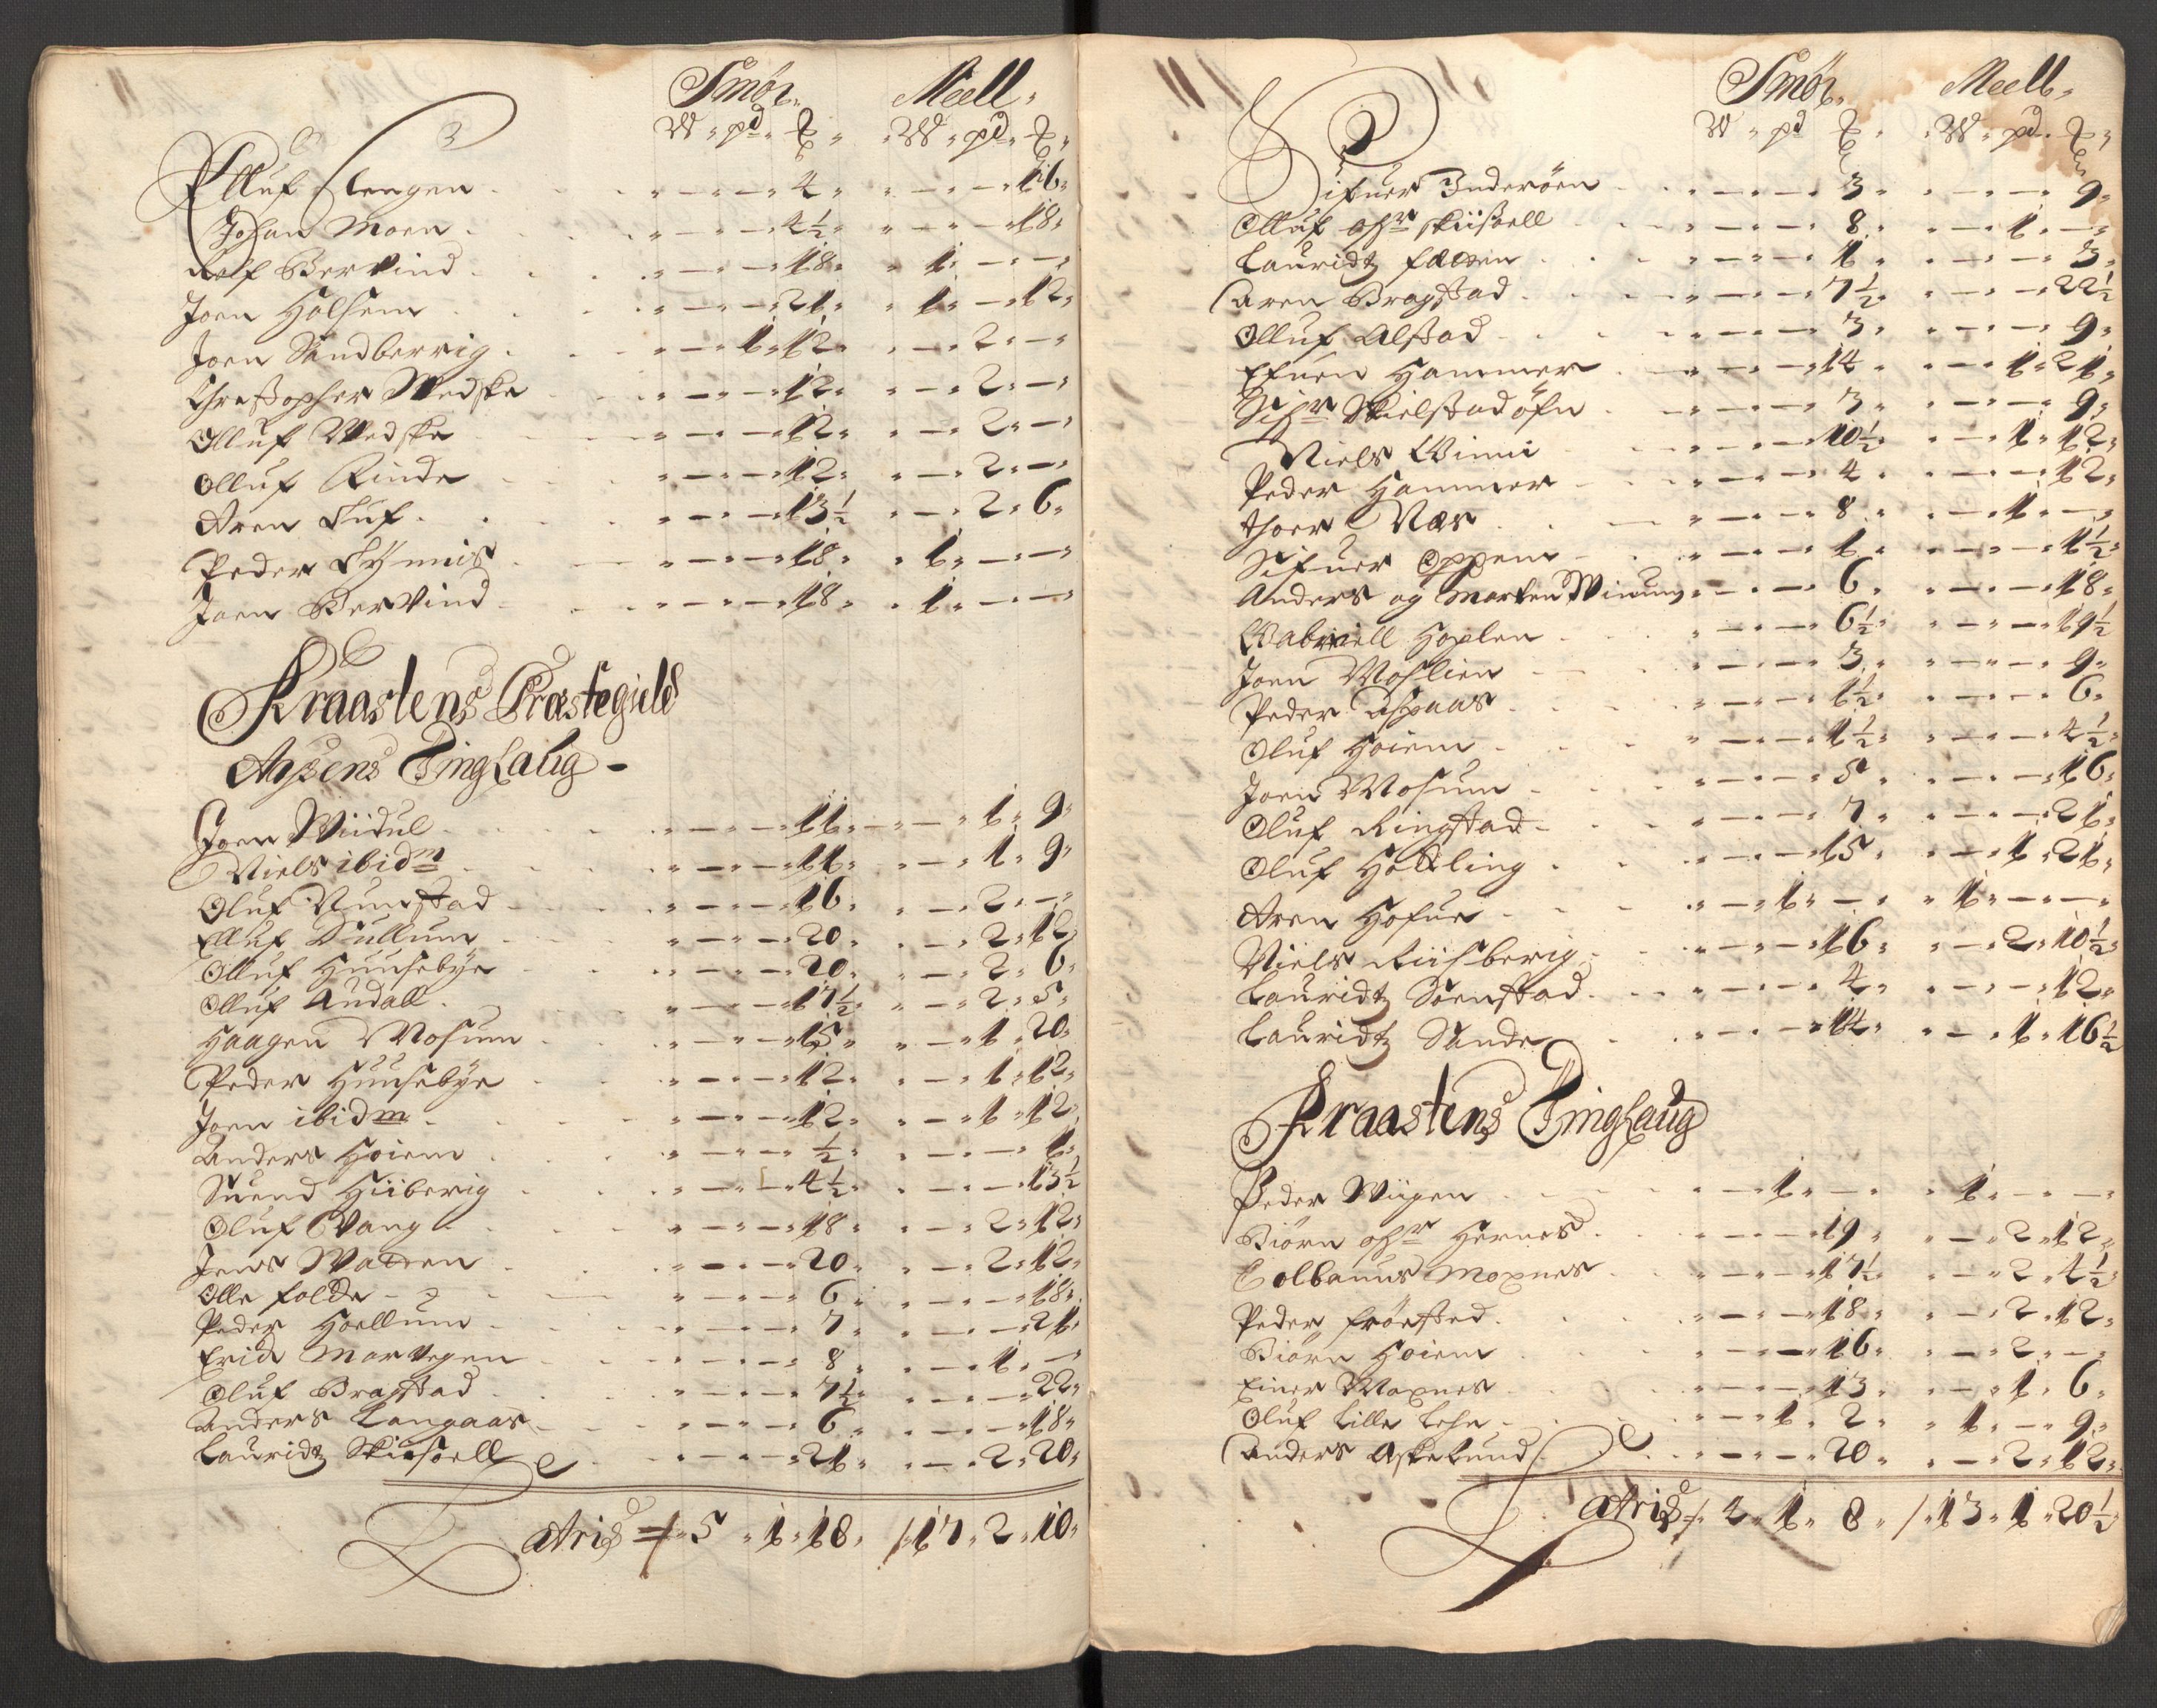 Smör. Meell.
W. pd. ℔. W. pd. ℔.
Elluf Slengen - - 4 - - 16
Johan Moen - - 4½ - - 18
Rolf Bervind - - 18 1 - -
Joen Holsem - - 21 1 - 12
Joen Sundberrig - 1 12 - 2 -
Christopher Wedske - - 12 - 2 -
Olluf Wedske - - 12 - 2 -
Olluf Rinde - - 12 - 2 -
Aren Tuf - - 13½ - 2 6
Peder Tynnis - - 18 1 - -
Joen Bervind - - 18 1 - -
Kraastens Præstegield
Auffens Tinglaug
Joen Wiidul - - 11 - 1 9
Niels ibidm - - 11 - 1 9
Oluf Rungstad - - 16 - 2 -
Elluf Dullum - - 20 - 2 12
Olluf Huusebye - - 20 - 2 6
Olluf Audall - - 17½ - 2 5
Haagen Mosum - - 15 - 1 20
Peder Huusebye - - 12 - 1 12
Joen ibidm - - 12 - 1 12
Anders Hoiem - - ½ - - 1
Suend Hiiberig - - 4½ - - 13½
Oluf Wang - - 18 - 2 12
Jens Watten - - 20 - 2 12
Olle Folde - - 6 - - 18
Peder Hoellum - - 7 - - 21
Erich Marttegen - - 8 - 1 -
Oluf Bragstad - - 7½ - - 22
Anders Langaas - - 6 - - 18
Lauridtz Skiefsell - - 21 - 2 20
Latris 5 1 18 / 17 2 10
Smör. Meell.
W. pd ℔. W. pd. ℔.
Sifuer Inderöen - - 3 - - 9
Olluf ohr Skiisell - - 8 - 1 -
Lauridtz Fætten - - 1 - - 3
Aren Bragstad - - 7½ - - 22½
Olluf Alstad - - 3 - - 9
Efuen Hammer - - 14 - 1 21
Sihr Kielstad öfn - - 3 - - 9
Niels Winni - - 10½ - 1 12
Peder Hammer - - 4 - - 12
Thoer Næs - - 8 - 1 -
Sifuer Oppem - - 1 - - 1½
Anders og Morten Winum - - 6 - - 18
Gabriell Hoplen - - 6½ - - 19½
Joen Moslien - - 3 - - 9
Peder Aspaas - - 1½ - - 6
Oluf Hoiem - - 1½ - - 4½
Joen Mosum - - 5 - - 16
Oluf Ringstad - - 7 - - 21
Oluf Holling - - 15 - 1 21
Aren Hofue - 1 - 1 - -
Niels Riisberig - - 16 - 2 10½
Lauridtz Sernstad - - 4 - - 12
Lauridtz Sunde - - 14 - 1 16½
Kraastens Tinglaug
Peder Wiigen - 1 - 1 - -
Biörn ohr Hernes - - 19 - 2 12
Colbanus Moxnes - - 17½ - 2 4½
Peder Fröested - - 18 - 2 12
Biörn Hoiem - - 16 - 2 -
Einer Moxnes - - 13 - 1 6
Oluf Lille Lehn - 1 2 1 - 9
Anders Askelund - - 20 - 2 12
Latris 4 1 8 / 13 1 20½